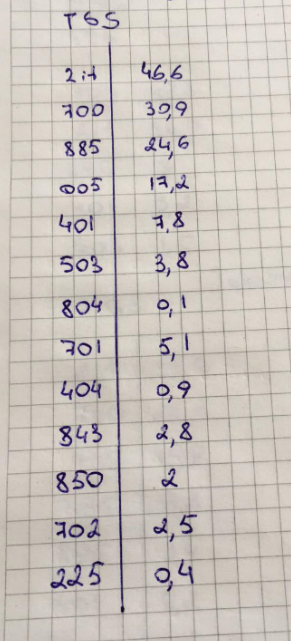 TGS
46,6
700 30,9
885 24,6
005 17,2
401 7,8
503 3,8
804 0,1
701 5,1
404 0,9
843 2,8
850 2
702 2,5
225 0,4